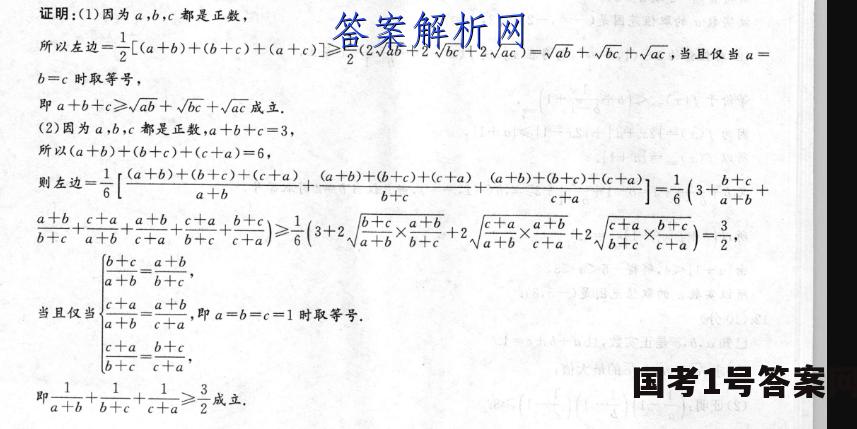 证明:(1)因为 a,b,c 都是正数,
答案解析网
所以左边=\frac{1}{2}[(a+b)+(b+c)+(a+c)]≥\frac{1}{2}(2√ab+2√bc+2√ac)=√ab+√bc+√ac,当且仅当 a=
b=c 时取等号,
即 a+b+c≥√ab+√bc+√ac成立.
(2)因为 a,b,c 都是正数,a+b+c=3,
所以(a+b)+(b+c)+(c+a)=6,
则左边=\frac{1}{6}[\frac{(a+b)+(b+c)+(c+a)}{a+b}+\frac{(a+b)+(b+c)+(c+a)}{b+c}+\frac{(a+b)+(b+c)+(c+a)}{c+a}]=\frac{1}{6}(3+\frac{b+c}{a+b}+
\frac{a+b}{b+c}+\frac{c+a}{a+b}+\frac{a+b}{c+a}+\frac{c+a}{b+c}+\frac{b+c}{c+a})≥\frac{1}{6}(3+2\sqrt{\frac{b+c}{a+b}×\frac{a+b}{b+c}}+2\sqrt{\frac{c+a}{a+b}×\frac{a+b}{c+a}}+2\sqrt{\frac{c+a}{b+c}×\frac{b+c}{c+a}})=\frac{3}{2},
\frac{b+c}{a+b}=\frac{a+b}{b+c},
当且仅当{\frac{c+a}{a+b}=\frac{a+b}{c+a},即 a=b=c=1 时取等号.
\frac{c+a}{b+c}=\frac{b+c}{c+a},
即\frac{1}{a+b}+\frac{1}{b+c}+\frac{1}{c+a}≥\frac{3}{2}成立.
国考1号答案网